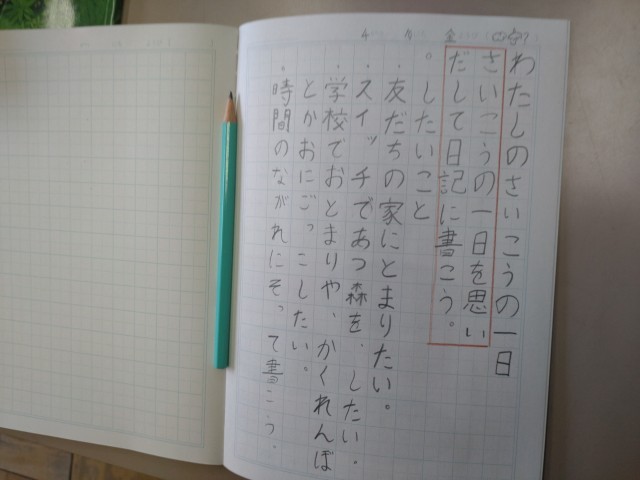 わたしのさいこうの一日
さいこうの一日を思い
だして日記に書こう。
。したいこと
・友だちの家にとまりたい。
・スイッチであつ森を、したい。
・学校でおとまりや、かくれんぼ
とかおにごっこしたい。
・時間のながれにそって書こう。